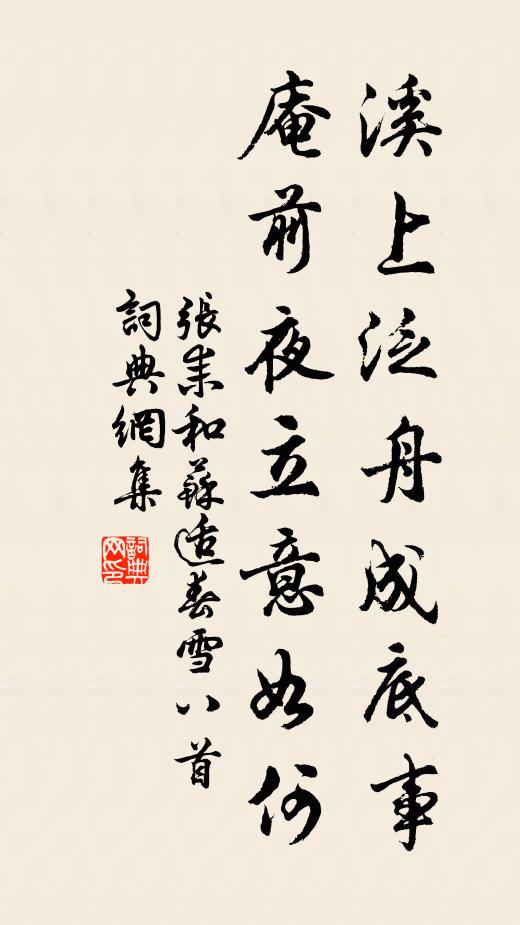 溪上泛舟成底事
庵前夜立意如何
張耒和蘇适春雪八首
詞典網集
詞典網印